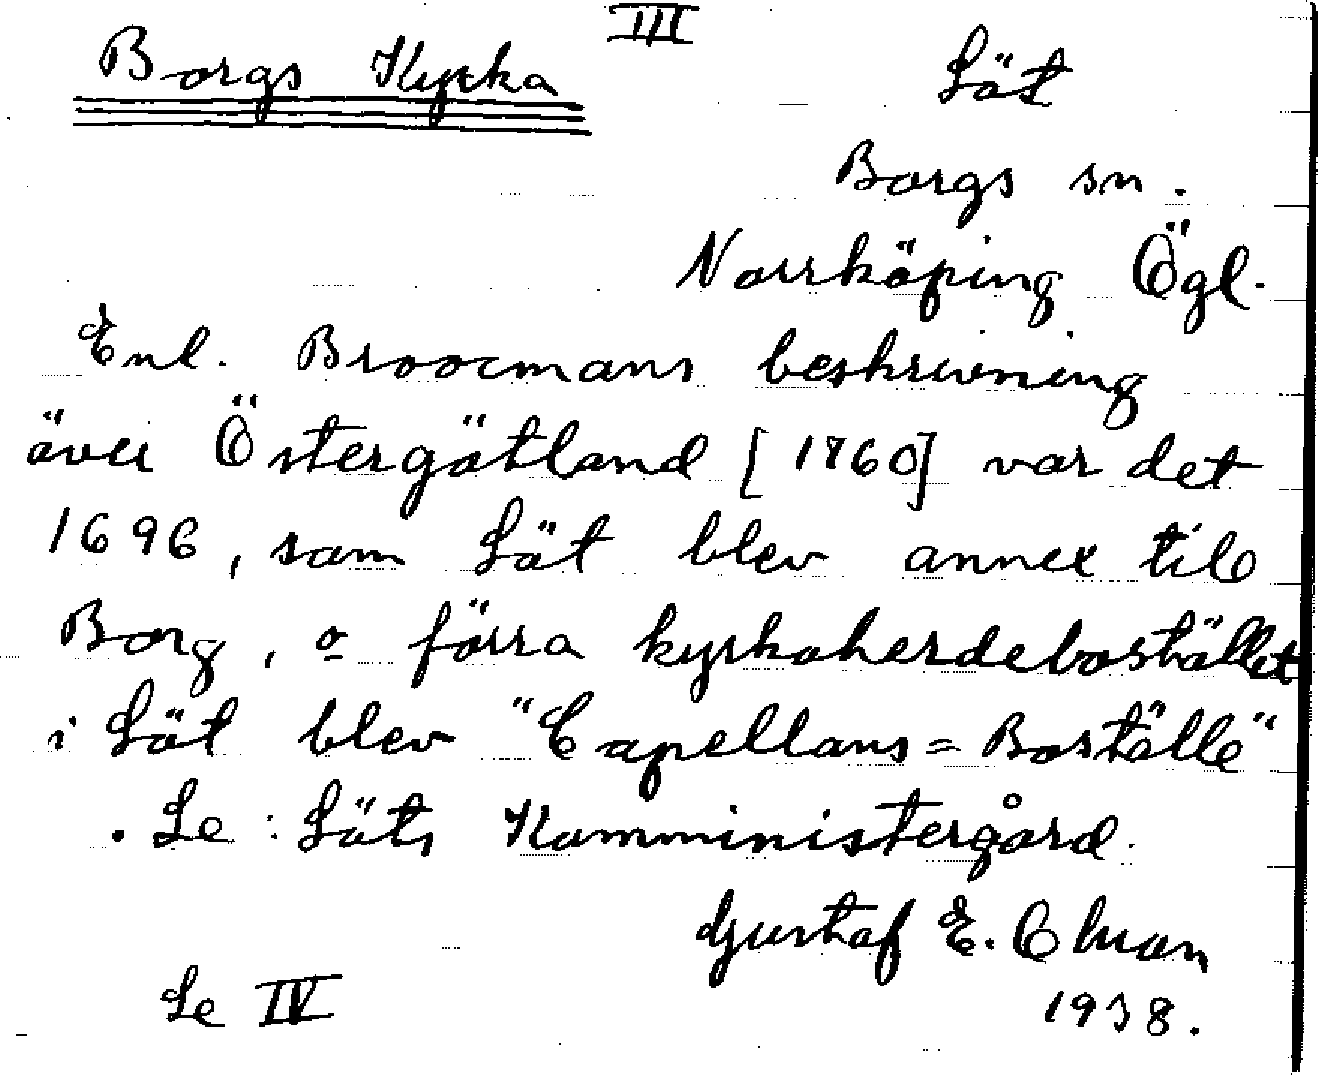 III
Borgs Kyrka
Löt
Borgs sn.
Norrköping Ögl.
Enl. Broocmans beskrivning
över Östergötland [1760] var det
1696, som Löt blev annex till
Borg, o förra kyrkoherdebostället
i Löt blev "Capellans=Boställe"
. Se: Löts Komministergård.
Gustaf E.
1938.
Se IV